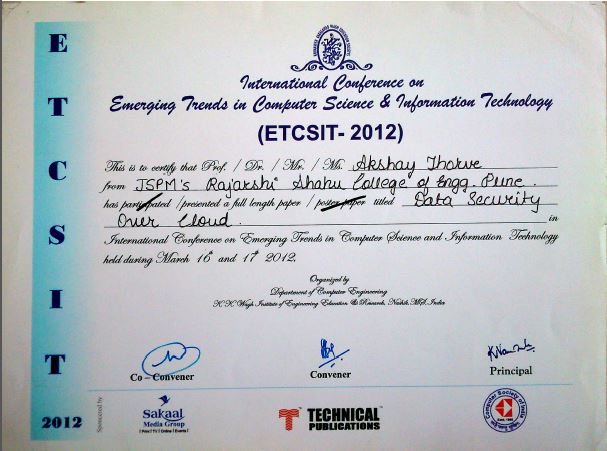 E
T
C
S
I
T
2012
International Conference on
Emerging Trends in Computer Science & Information Technology
(ETCSIT- 2012)
This is to certify that Prof. / Dr. / Mr. / Ms. Akshay Thorve
from JSPM's Rajarshi Shahu College of Engg. Pune.
has participated / presented a full length paper / poster paper titled Data Security
Over Cloud. in
International Conference on Emerging Trends in Computer Science and Information Technology
held during March 16th and 17th 2012.
Organized by
Department of Computer Engineering
K K Wagh Institute of Engineering Education & Research, Nashik, M.S. India
Co – Convener
Convener
Principal
Sponsored by
Sakaal
Media Group
| Print | TV | Online | Events |
TECHNICAL
PUBLICATIONS
Computer Society of India